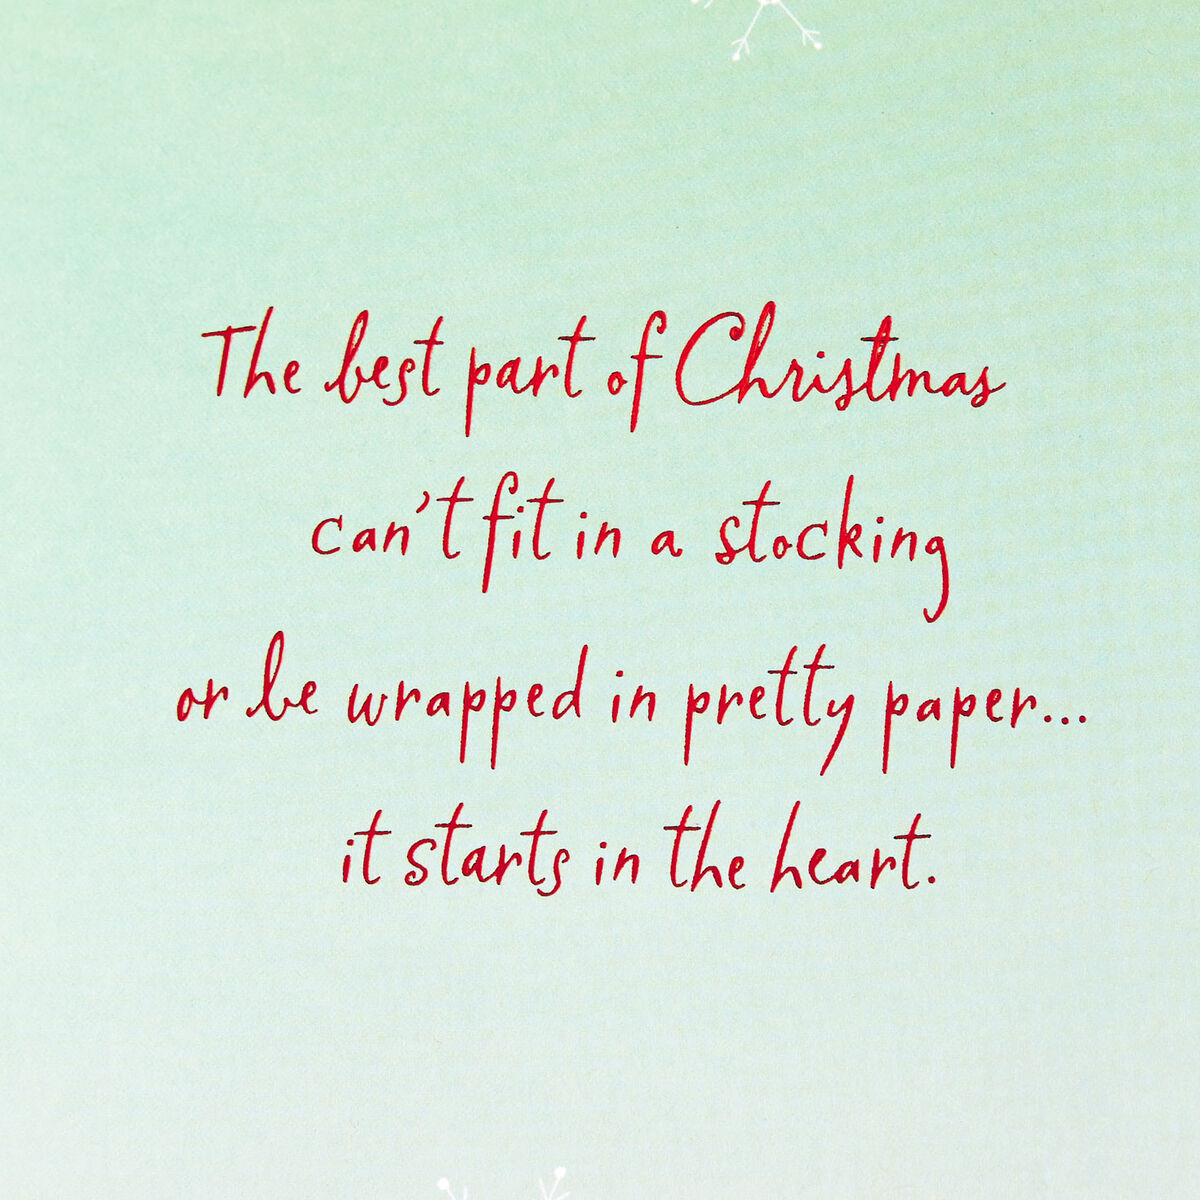 The best part of Christmas
can't fit in a stocking
or be wrapped in pretty paper...
it starts in the heart.